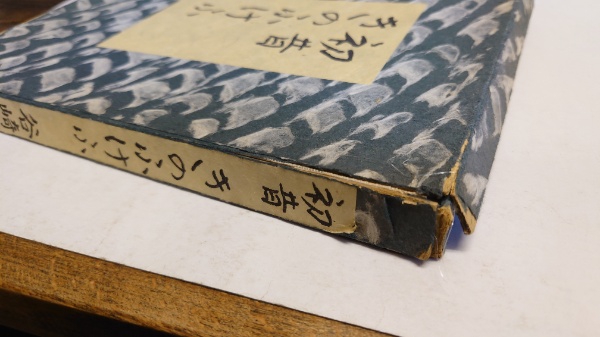 初昔
きのふけふ
初昔 きのふけふ 谷崎